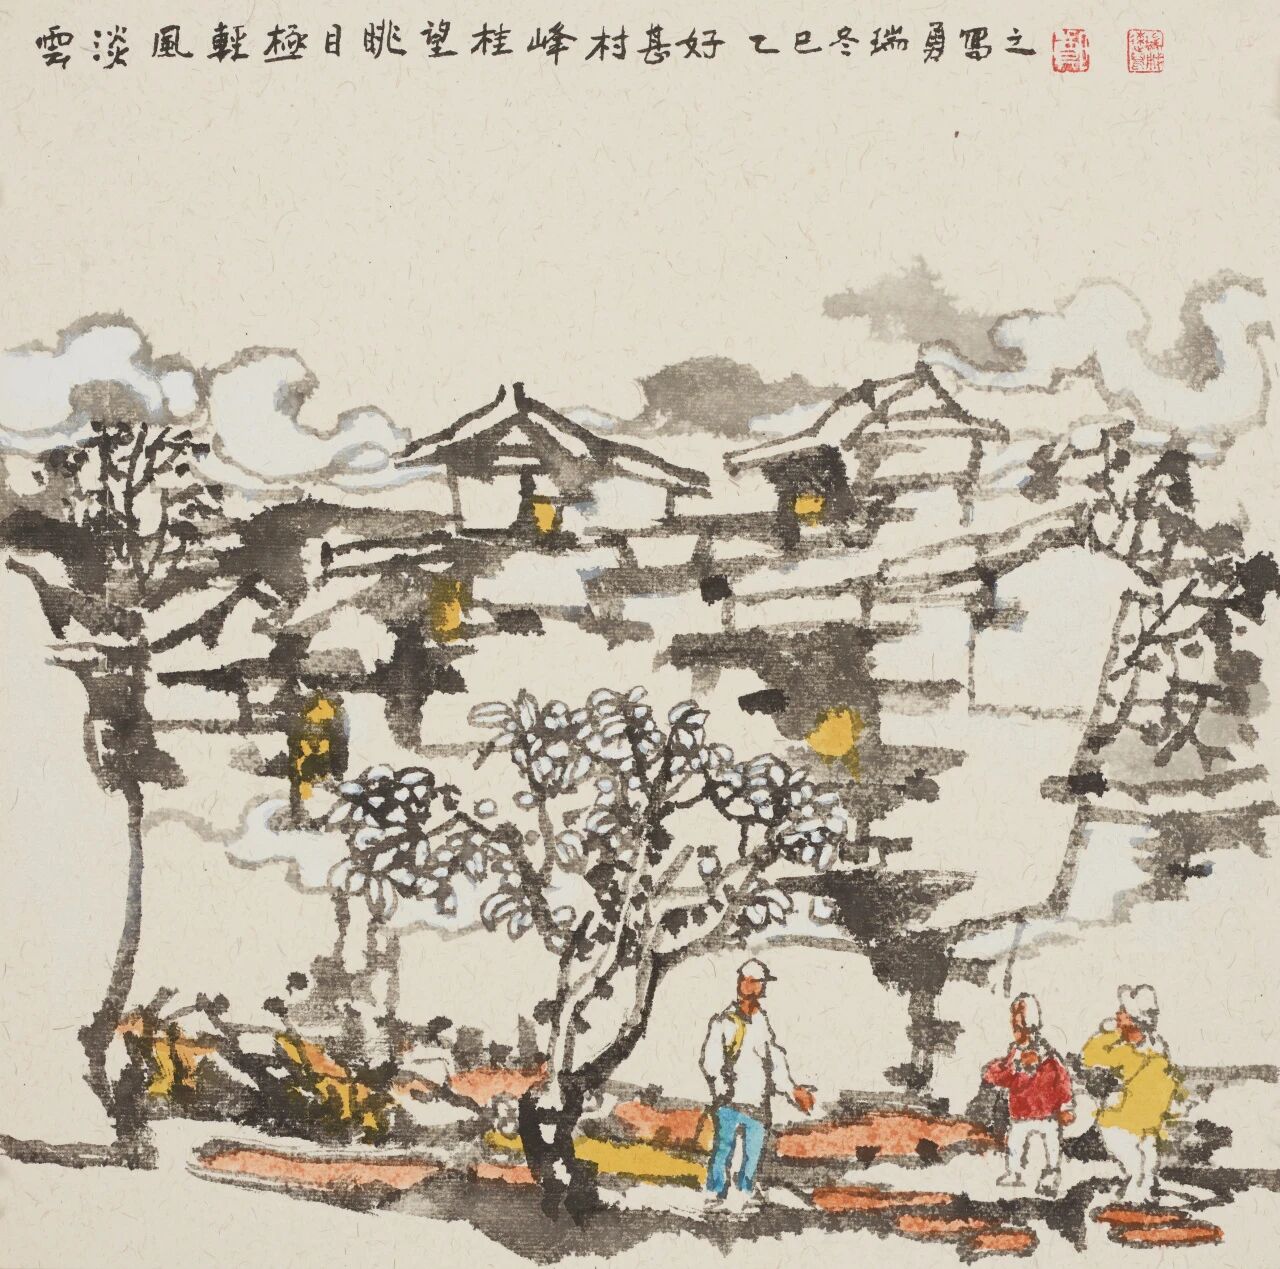 雲淡風輕極目眺望桂峰村甚好 乙巳冬瑞勇寫之